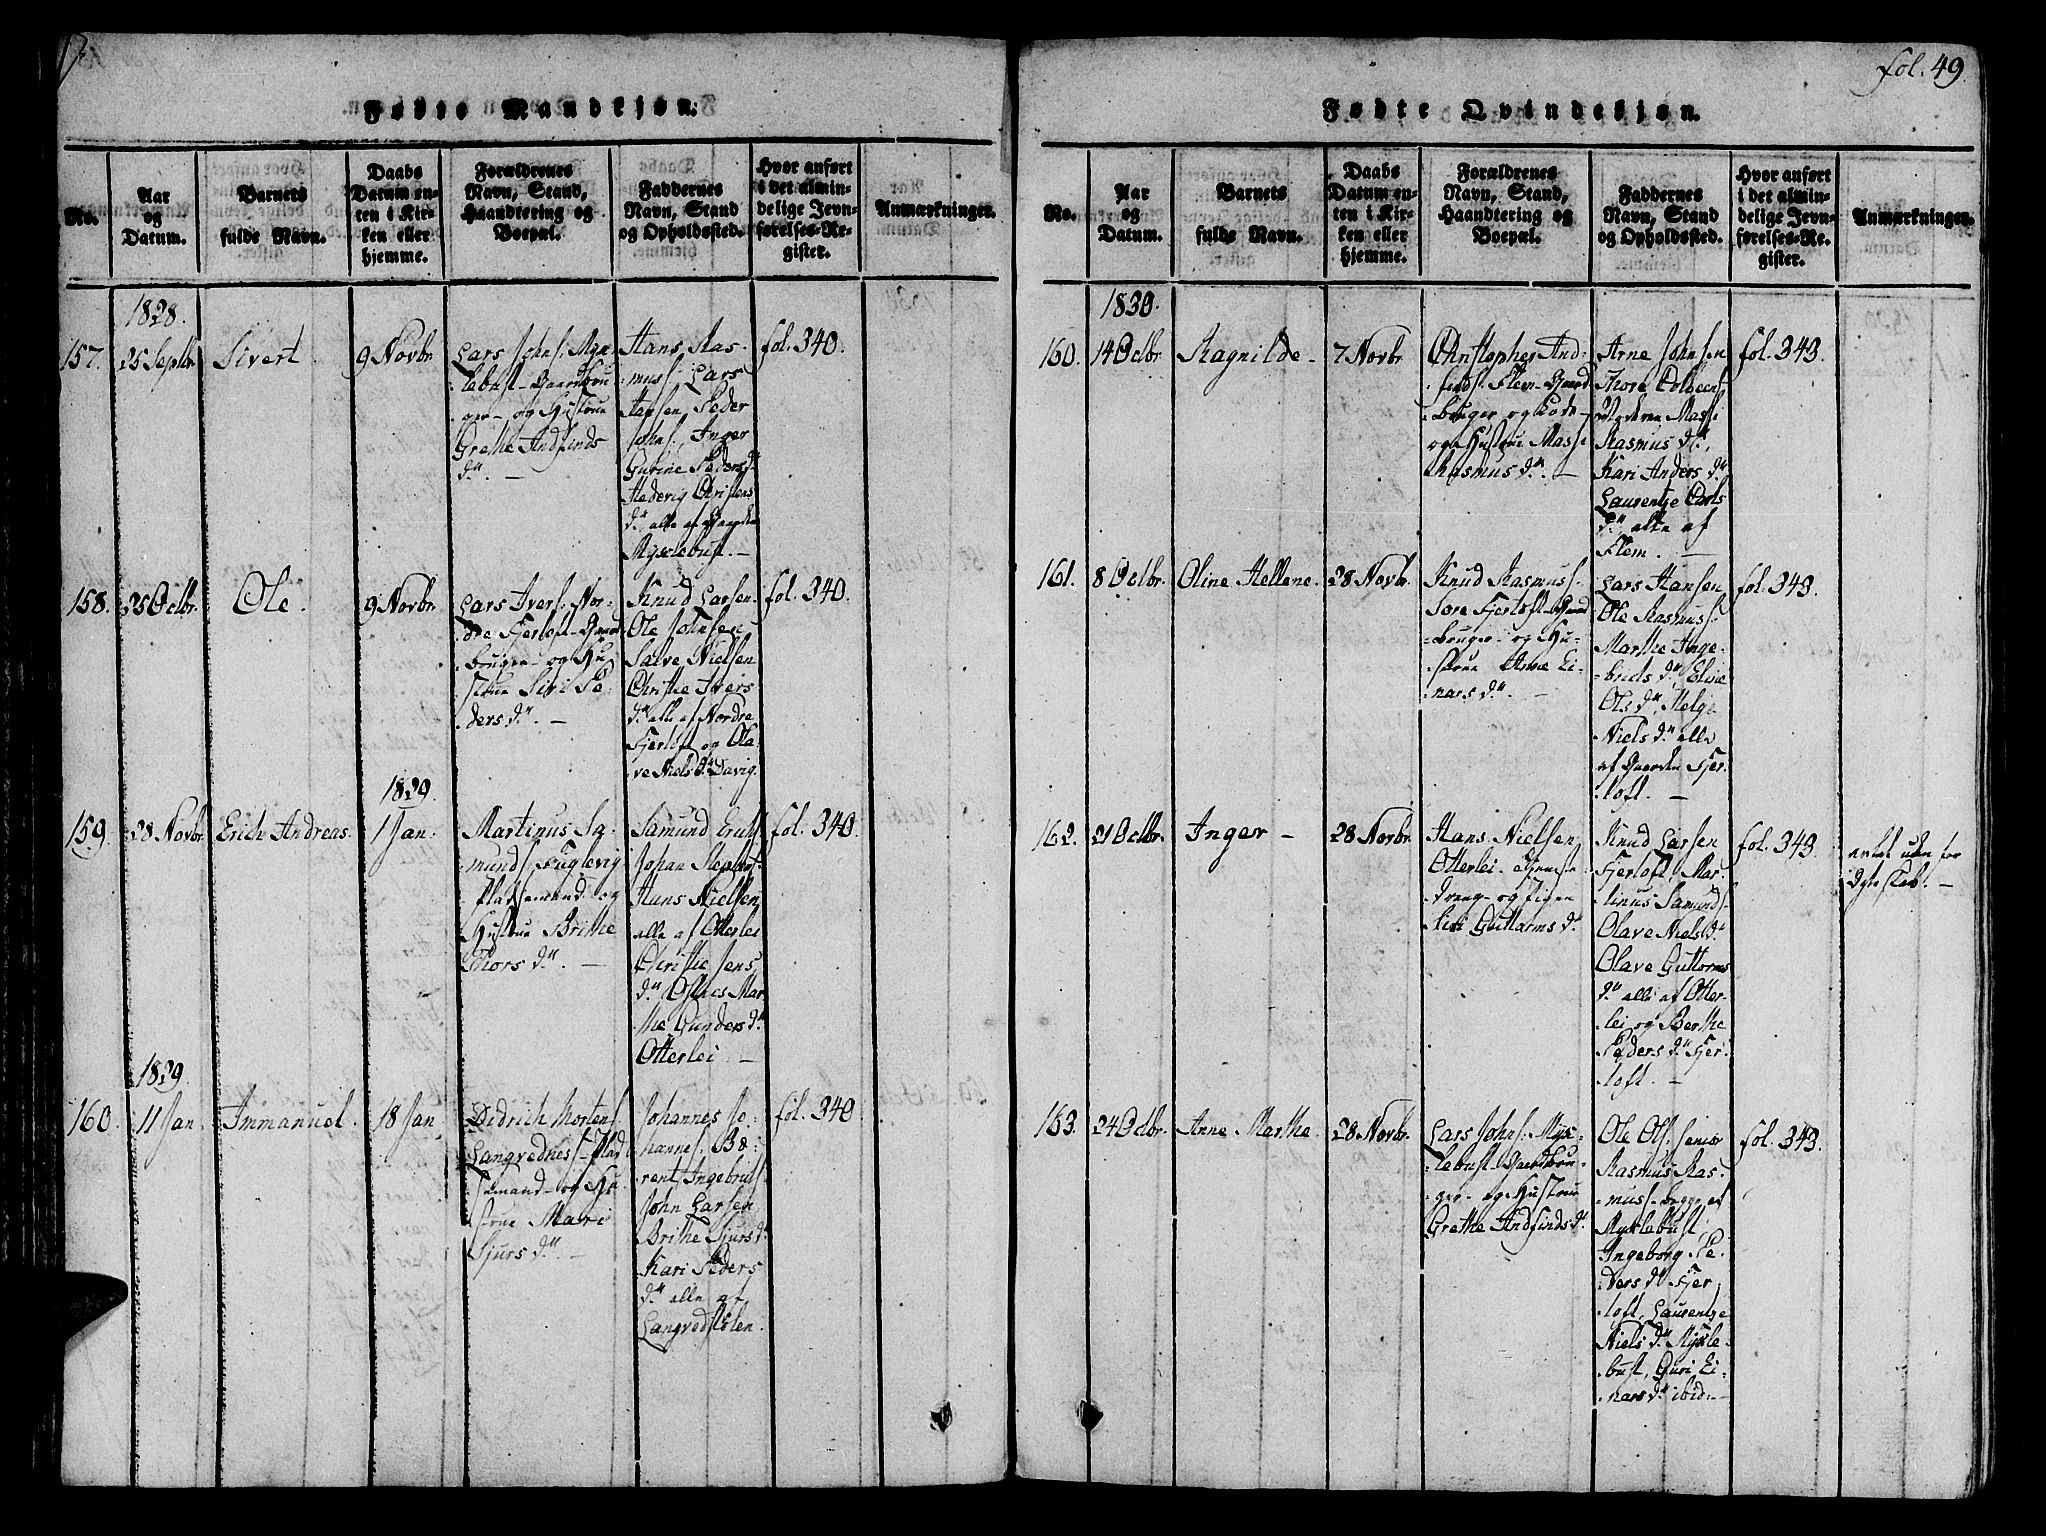 fol. 49.
Fødte Mandkjøn.
No.
Aar
og
Datum.
Barnets
fulde Navn.
Daabs
Datum en-
ten i Kir-
ken eller
hjemme.
Forældrenes
Navn, Stand,
Haandtering og
Boepæl.
Faddernes
Navn, Stand
og Opholdssted.
Hvor anført
i det almin-
delige Jevn-
førelses-Re-
gister.
Anmærkninger.
1828.
157.
25 Septbr
Sivert
9 Novbr
Lars Johns. Myk-
lebust Gaardbru
ger og Hustrue
Grethe Andfinds
d.
Hans Ras-
mus. Lars
Hansen, Peder
Johns. Inger
Gurine Peders d.
Hedevig Christens
d. alle af Gaarden
Myklebust.
fol. 340.
158.
25 Octbr.
Ole
9 Novbr.
Lars Ivers. Nor-
dre Fjertoft Gaard
bruger og Hu
strue Siri Pe
ders d.
Knud Larsen
Ole Johnsen
Salve Nielsen
Christhe Ivers
d. alle af Nordre
Fjertoft og Ola
ve Niels d. Davig.
fol. 340.
159.
28 Novbr
Erich Andreas
1829.
1 Jan.
Martinus Sa
munds. Fuglevig
Pladsemand og
Hustrue Brithe
Thors d.
Samund Erichs.
Johan
Hans Nielsen
alle af Otterlei
Christhe Jens
d. Mar
the Gunders d.
Otterlei
fol. 340.
1829.
160.
11 Jan.
Immanuel.
18 Jan.
Didrich Mortens.
Langvednes Plad
semand og Hu
strue Mari
Sjurs d.
Johannes Jo-
hannes. Be-
rent Ingebrits.
John Larsen
Brithe Sjurs d.
Kari Peders
d. alle af
Langvedstolen.
fol. 340
Fødte Qvindekjøn.
No.
Aar
og
Datum.
Barnets
fulde Navn.
Daabs
Datum en-
ten i Kir-
ken eller
hjemme.
Forældrenes
Navn, Stand,
Haandtering og
Boepæl.
Faddernes
Navn, Stand
og Opholdssted.
Hvor anført
i det almin-
delige Jevn-
førelses-Re-
gister.
Anmærkninger.
1830.
160.
14 Octbr.
Ragnilde
7 Novbr.
Christopher And-
finds. Flem Gaard
bruger og
og Hustrue Massi
Rasmus d.
Arne Johnsen
Thore Colbeens.
Moderen Massi
Rasmus d.
Kari Anders d.
Laurentze Carls
d. alle af
Flem.
fol. 343.
161.
8 Octbr.
Oline Hellene
28 Novbr.
Knud Rasmus.
Søre Fjertoft Gaard
bruger og Hu-
strue Anne Ei-
nars d.
Lars Hansen
Ole Rasmus.
Marthe Inge-
brits d. Eline
Ols d. Helge
Niels d. alle
af Gaarden Fjer-
toft.
fol. 343.
162.
21 Octbr.
Inger
28 Novbr.
Hans Nielsen
Otterlei tjeneste
dreng og Pigen
Siri Guttorms d.
Knud Larsen
Fjertoft, Mar-
tinus Samunds.
Olave Niels d.
Olave Guttorms
d. alle af Otter-
lei og Berthe
Peders d. Fjer-
toft.
fol. 343.
avlet uden for
Ægteskab.
163.
24 Octbr.
Anne Marthe
28 Novbr.
Lars Johns. Myk-
lebust Gaardbru-
ger og Hustrue
Grethe Andfinds d.
Ole Ols. senior
Rasmus Ras-
mus. begge af
Myklebust,
Ingeborg Pe-
ders d. Fjer
toft, Laurentze
Niels d. Mykle-
bust, Guri Ei-
nars d. ibid:
fol. 343.